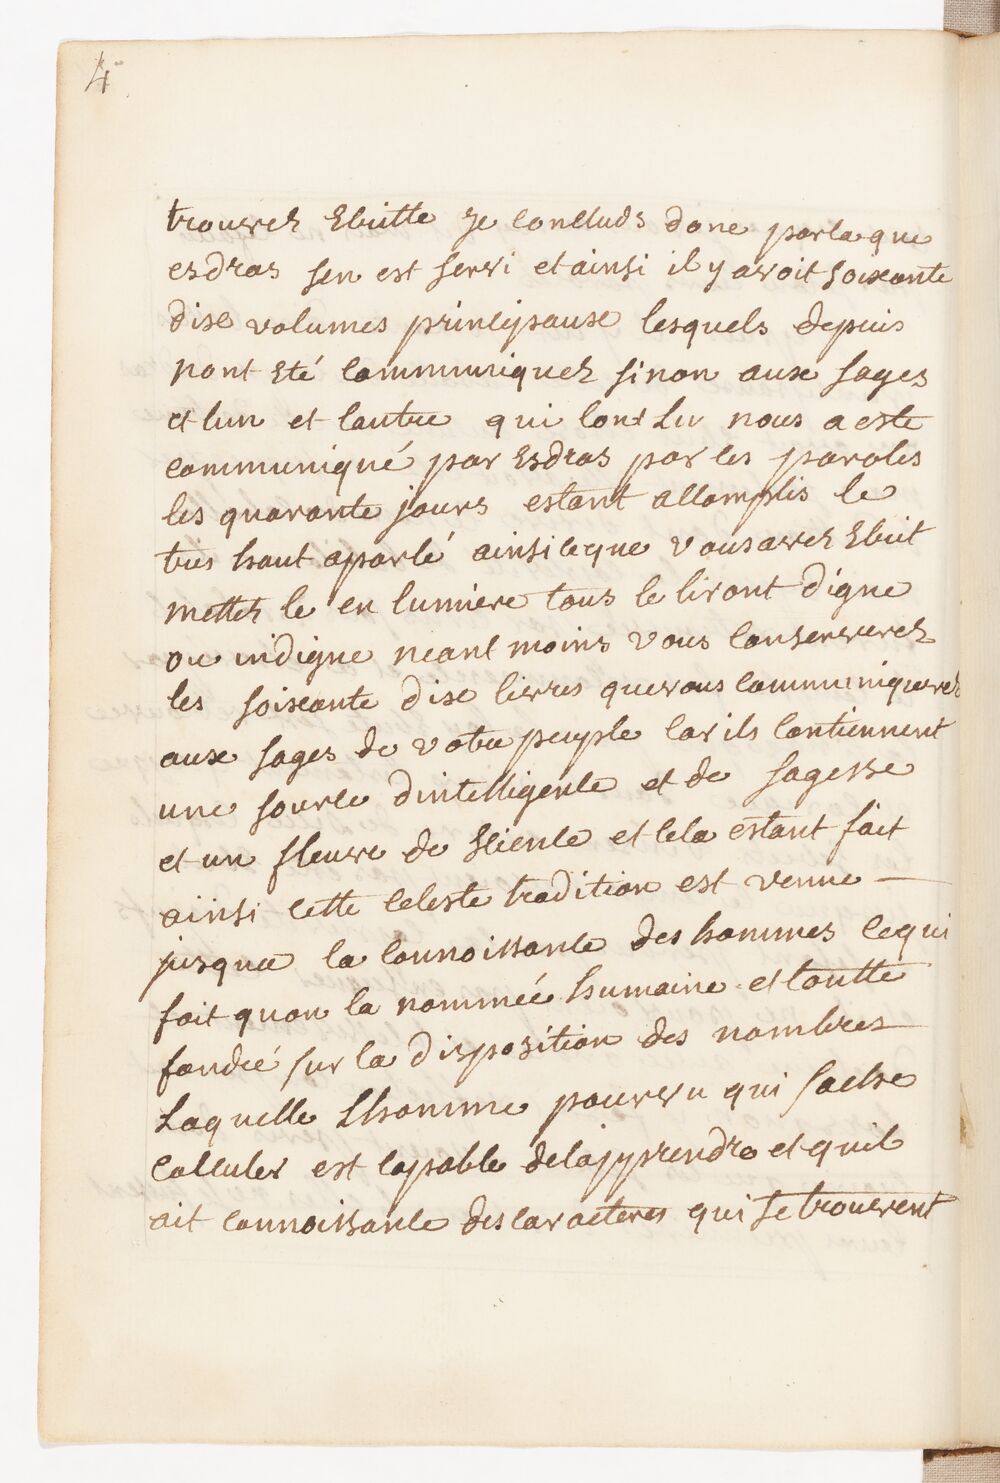 4
trouvez Ecritte je concluds donc parla que
esdras sen est servi et ainsi il y avoit soixante
dixe volumes principauxe lesquels depuis
nont Eté communiquez sinon auxe sages
et lun et lautre qui lont Lu nous a este
communiqué par Esdras par les paroles
les quarante jours estant accomplis le
tres haut aparlé ainsi ceque vous avez Ecrit
mettez le en lumiere tous le liront digne
ou indigne neant moins vous conserverez
les soixante dixe livres quevous communiquerez
auxe sages de votre peuple car ils contiennent
une source dintelligence et de sagesse
et un fleuve de science et cela estant fait
ainsi cette celeste tradition est venue —
jusqua la connoissance des hommes cequi
fait quon la nommée humaine et toutte
fondée sur la disposition des nombres
Laquelle Lhomme pourvu qui sache
calculer est capable delapprendre et quil
ait connoissance des caracteres qui se trouvent